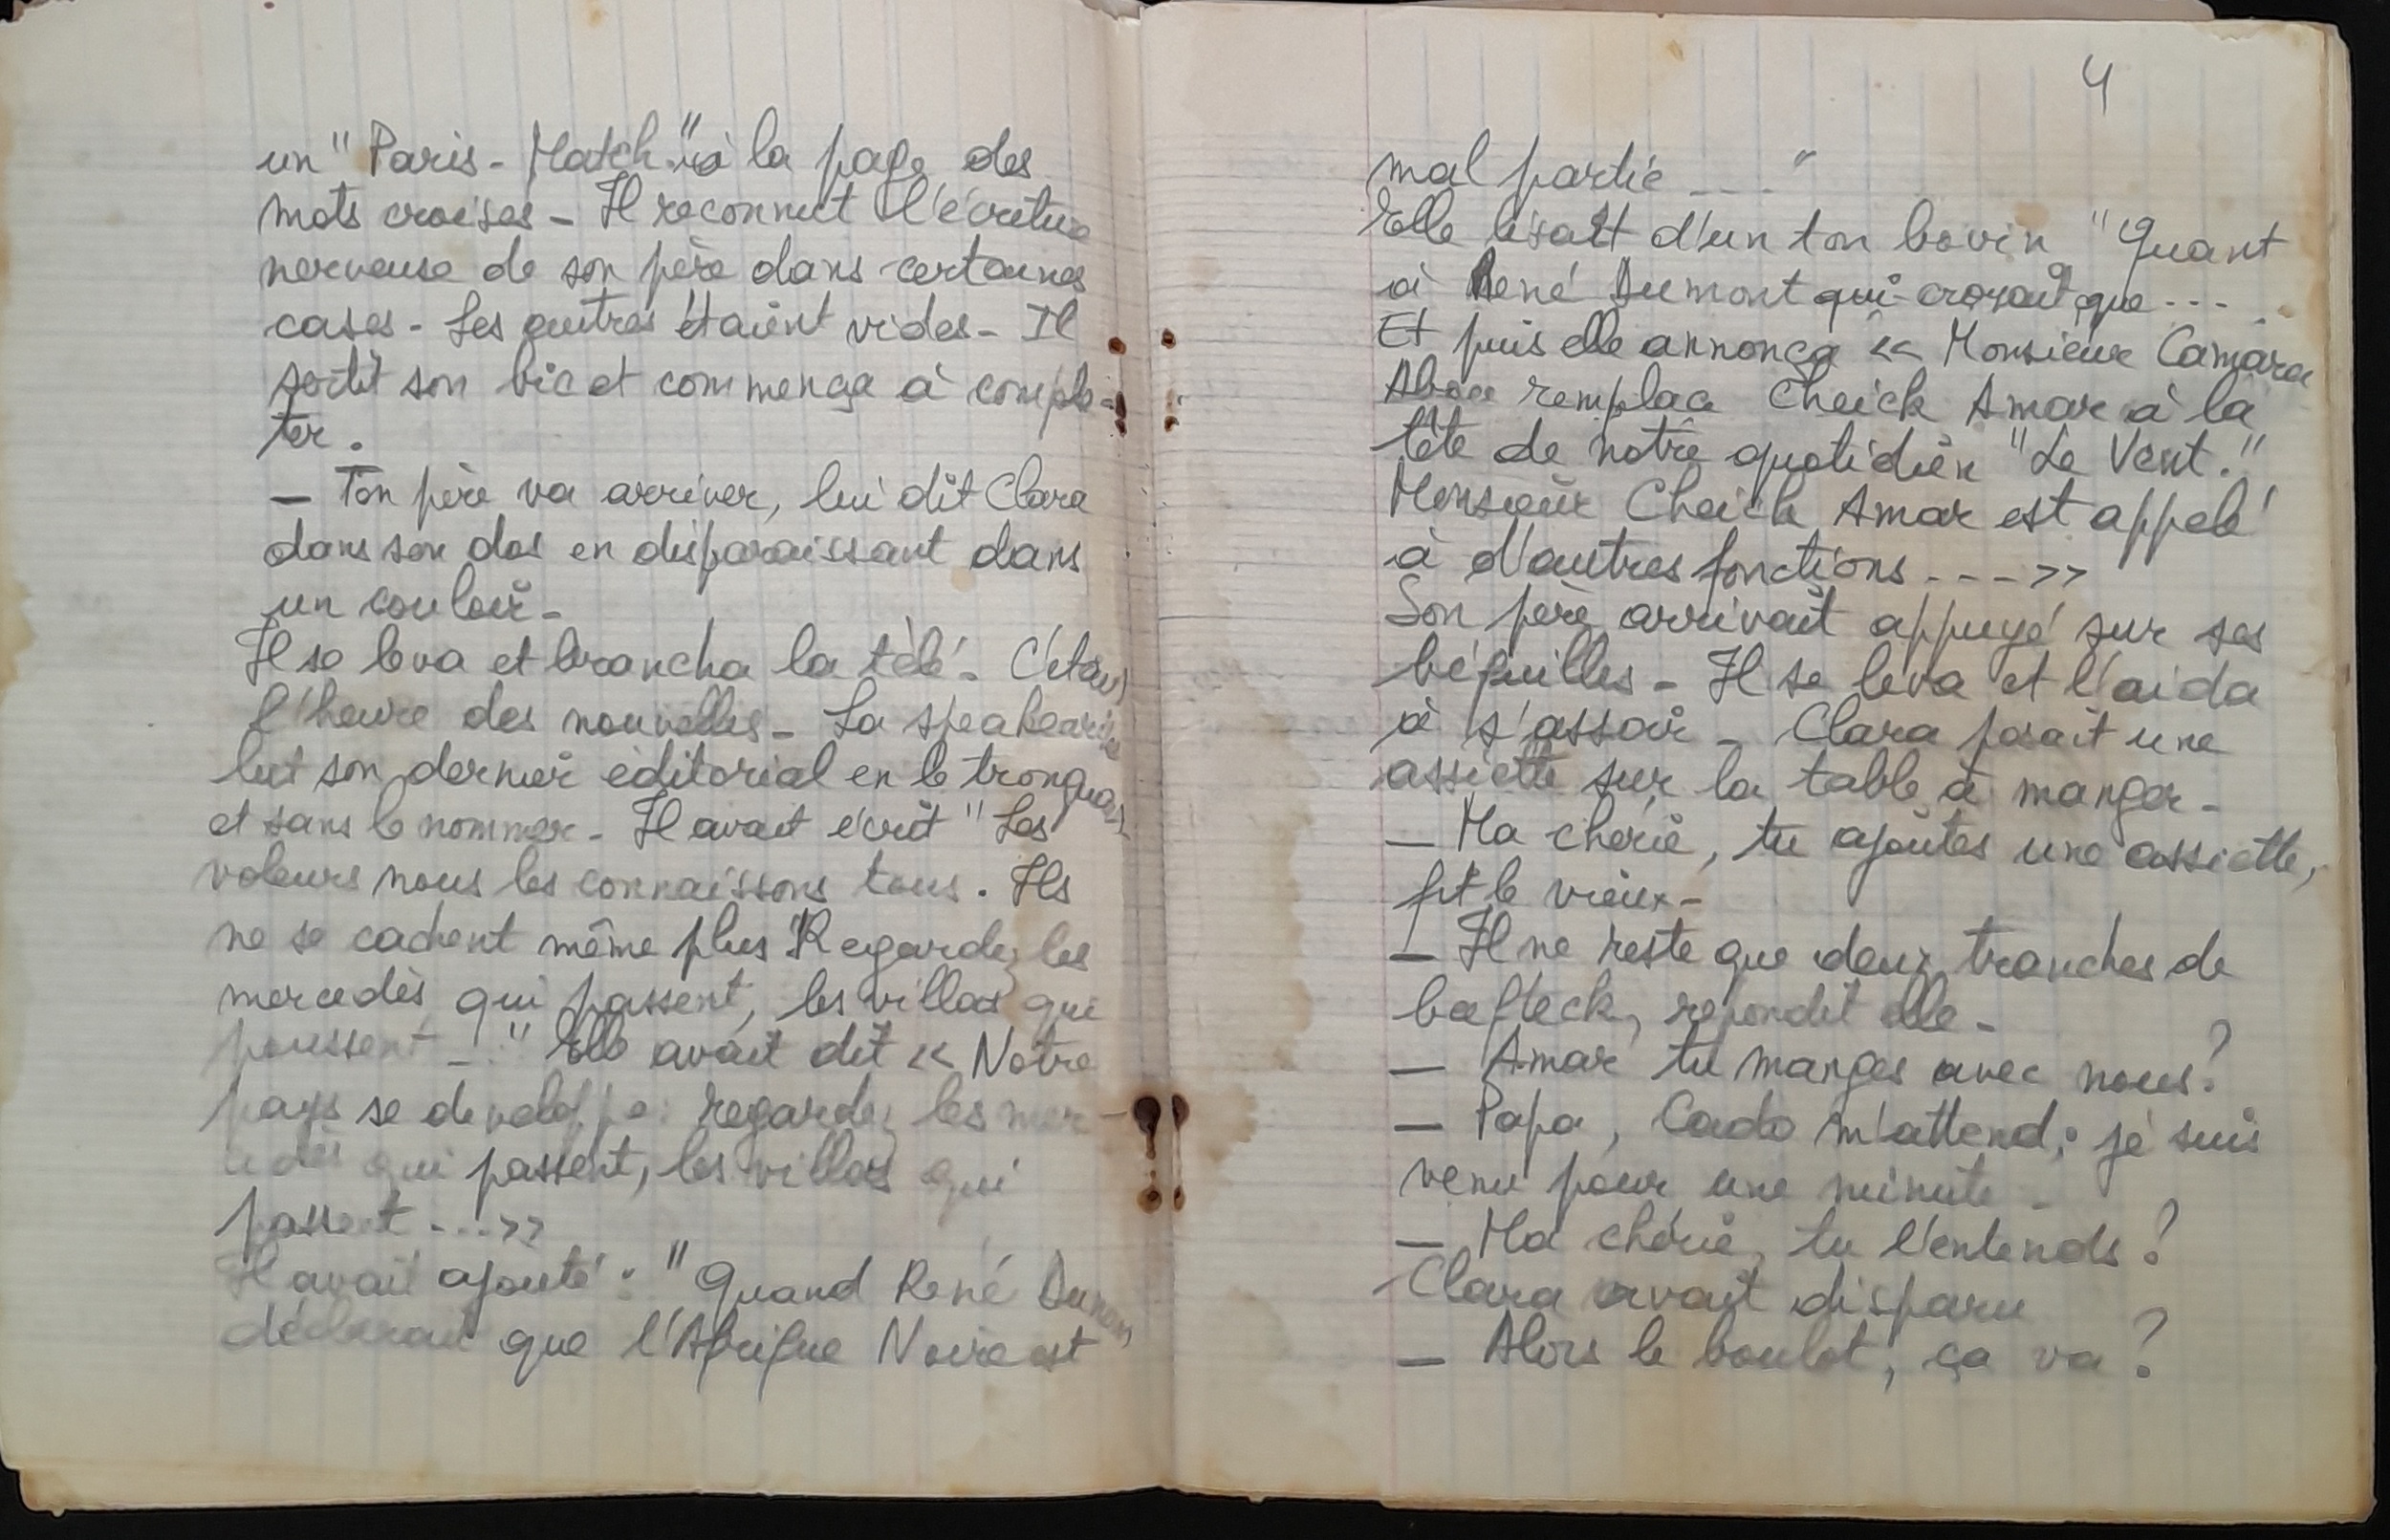 un "Paris-Match" à la page des
mots croisés - Il reconnut l'écriture
nerveuse de son père dans certaines
cases - Les autres étaient vides - Il
sortit son bic et commença à complé-
ter.
— Ton père va arriver, lui dit Clara
dans son dos en disparaissant dans
un couloir -
Il se leva et brancha la télé - C'était
l'heure des nouvelles - La speakerine
lut son dernier éditorial en le tronquant
et sans le nommer - Il avait écrit "Les
voleurs nous les connaissons tous. Ils
ne se cachent même plus Regardez les
mercedès qui passent, les villas qui
poussent -.." Elle avait dit << Notre
pays se développe: regardez les mer-
cedès qui passent, les villas qui
passent --->>
Il avait ajouté : "Quand René Dumont
déclarait que l'Afrique Noire est
4
mal partie ---- "
Elle lisait d'un ton bovin "Quant
à René Dumont qui croyait que ---
Et puis elle annonça << Monsieur Camara
remplace Cheick Amar à la
tête de notre quotidien "Le Vent."
Monsieur Cheick Amar est appelé
à d'autres fonctions ---->>
Son père arrivait appuyé sur ses
béquilles - Il se leva et l'aida
à s'assoir - Clara posait une
assiette sur la table à manger -
— Ma chérie, tu ajoutes une assiette,
fit le vieux -
— Il ne reste que deux tranches de
bafteck, répondit elle -
— Amar tu manges avec nous?
— Papa, Cado m'attend; je suis
venu pour une minute -
— Ma chérie, tu l'entends?
Clara avait disparu
— Alors le boulot, ça va?